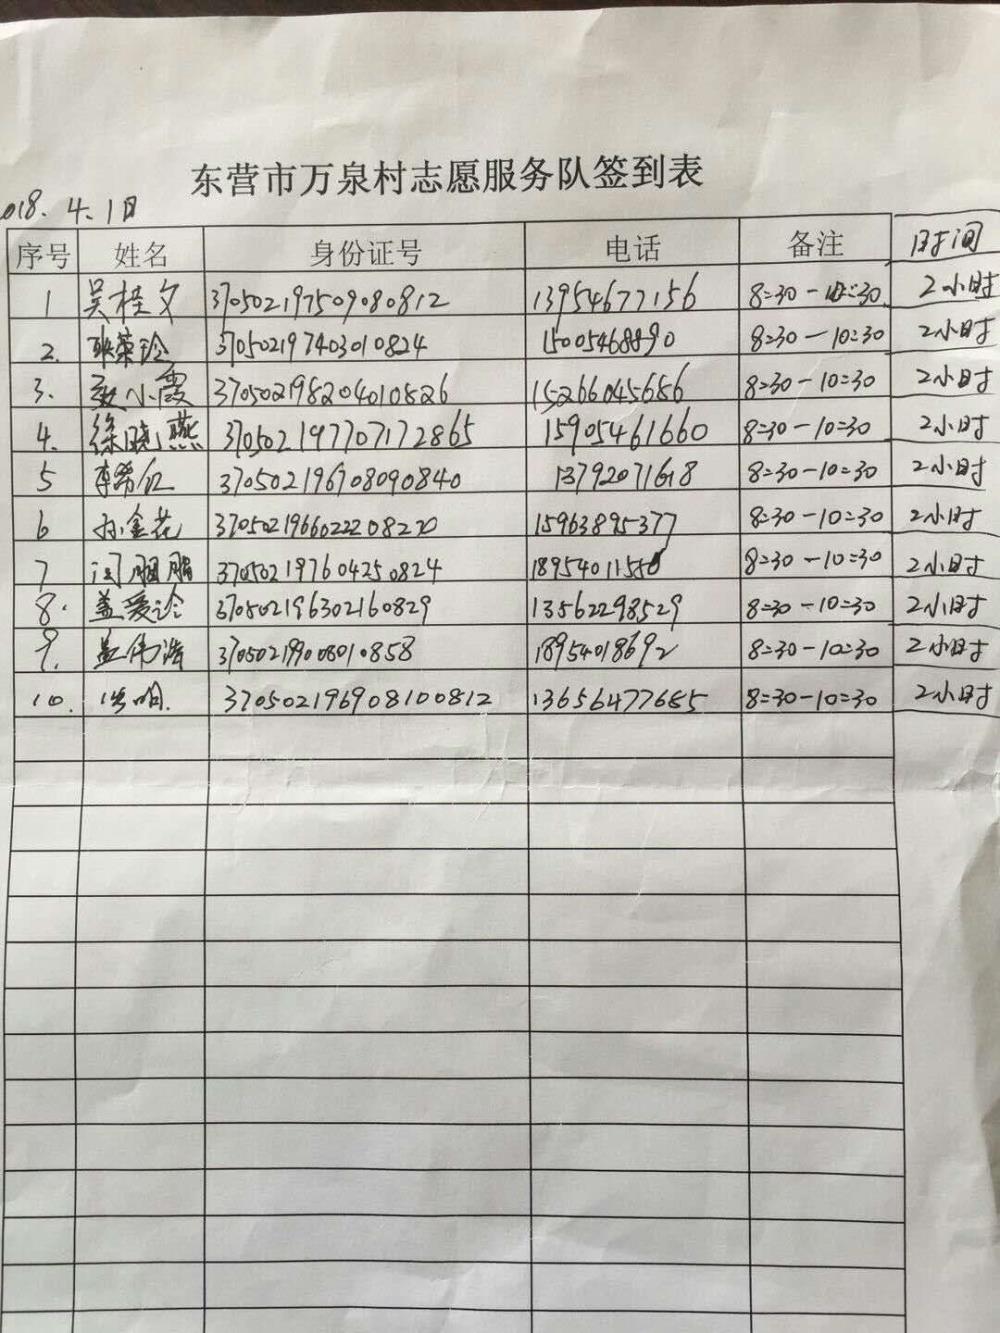 东营市万泉村志愿服务队签到表
018. 4. 1日
序号 姓名 身份证号 电话 备注 时间
1 吴桂夕 370502197509080812 13954677156 8=30-10=30 2小时
2. 370502197403010824 15005468890 8=30-10=30 2小时
3. 小霞 370502198204010826 15266045686 8=30-10=30 2小时
4. 徐晓燕 370502197707172865 15905461660 8=30-10=30 2小时
5 李希红 370502196708090840 13792071618 8=30-10=30 2小时
6 孙金花 370502196602220820 15963895377 8=30-10=30 2小时
7 闫胭脂 370502197604250824 8=30-10=30 2小时
8. 盖爱论 370502196302160829 13562298529 8=30-10=30 2小时
9. 盖伟浩 370502199008010858 18954018692 8=30-10=30 2小时
10. 370502196908100812 13656477685 8=30-10=30 2小时